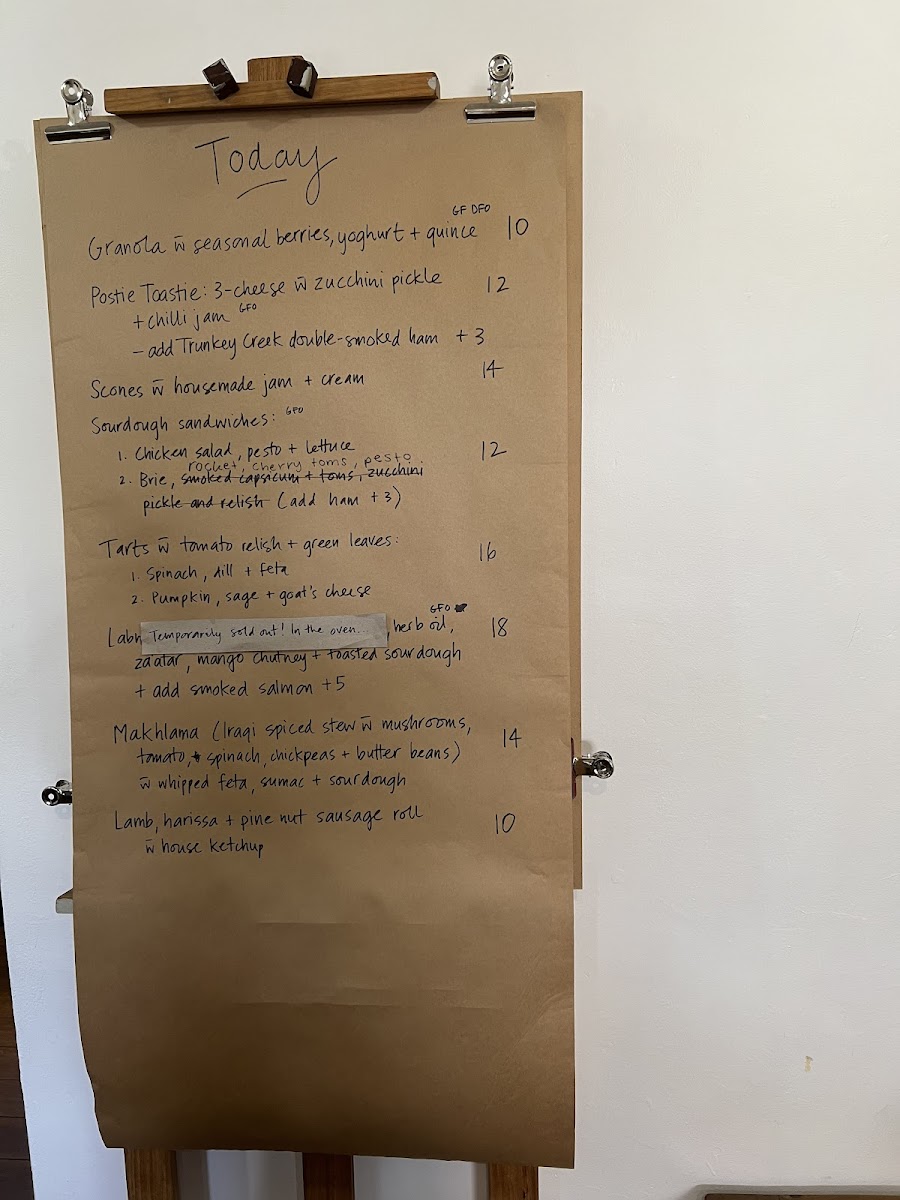 Today
Granola w̄ seasonal berries, yoghurt + quince GF DFO 10
Postie Toastie: 3-cheese w̄ zucchini pickle 12
+ chilli jam GFO
- add Trunkey Creek double-smoked ham + 3
Scones w̄ housemade jam + cream 14
Sourdough sandwiches: GFO
1. Chicken salad, pesto + lettuce 12
rocket, cherry toms, pesto
2. Brie, smoked capsicum + toms, zucchini
pickle and relish (add ham + 3)
Tarts w̄ tomato relish + green leaves: 16
1. Spinach, dill + feta
2. Pumpkin, sage + goat's cheese
Labn Temporarily sold out! In the oven... , herb oil, GFO 18
za'atar, mango chutney + toasted sourdough
+ add smoked salmon +5
Makhlama (Iraqi spiced stew w̄ mushrooms, 14
tomato, spinach, chickpeas + butter beans)
w̄ whipped feta, sumac + sourdough
Lamb, harissa + pine nut sausage roll 10
w̄ house ketchup